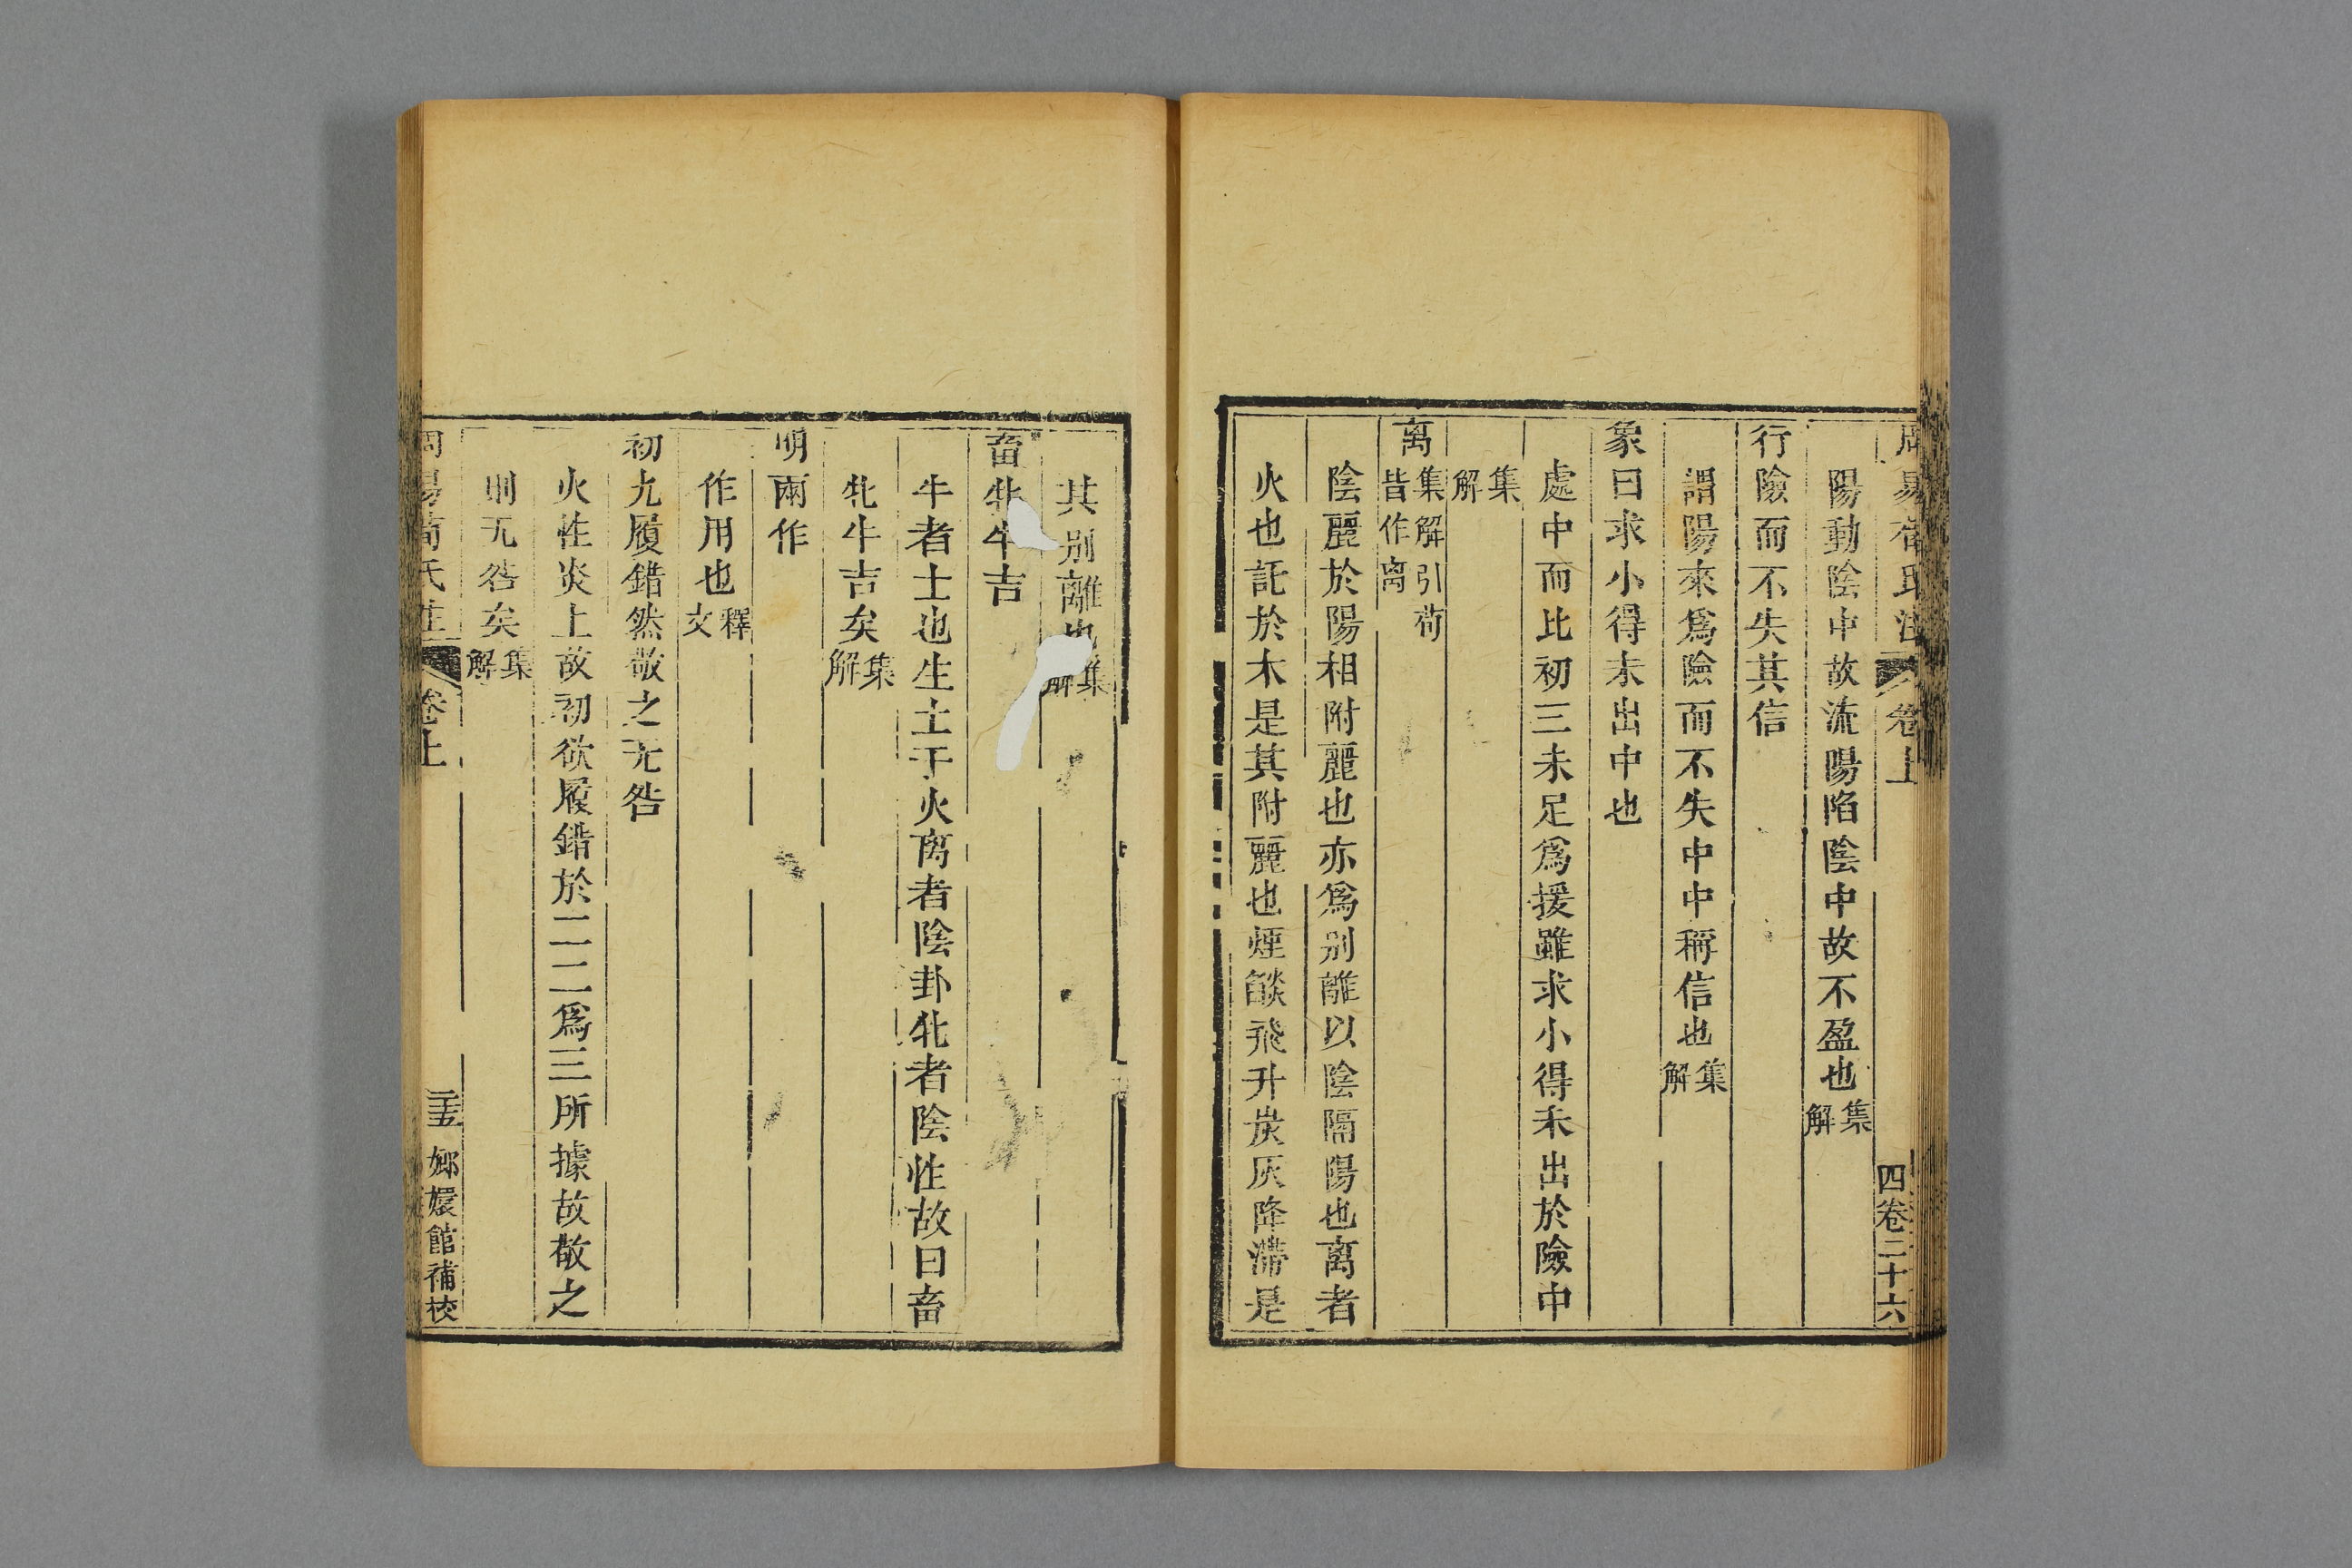 周易荀氏注 卷上 四卷二十六
陽動陰中故流陽陷陰中故不盈也集解
行險而不失其信
謂陽來爲險而不失中中稱信也集解
象曰求小得未出中也
處中而比初三未足爲援雖求小得未出於險中
集解
离集解引荀皆作离
陰麗於陽相附麗也亦爲别離以陰隔陽也离者
火也託於木是其附麗也煙燄飛升炭灰降滯是
其别離也集解
畜牝牛吉
牛者土也生土于火离者陰卦牝者陰性故曰畜
牝牛吉矣集解
明兩作
作用也釋文
初九履錯然敬之无咎
火性炎上故初欲履錯於二二爲三所據故敬之
則无咎矣集解
周易荀氏注 卷上 二十五 嫏嬛館補校